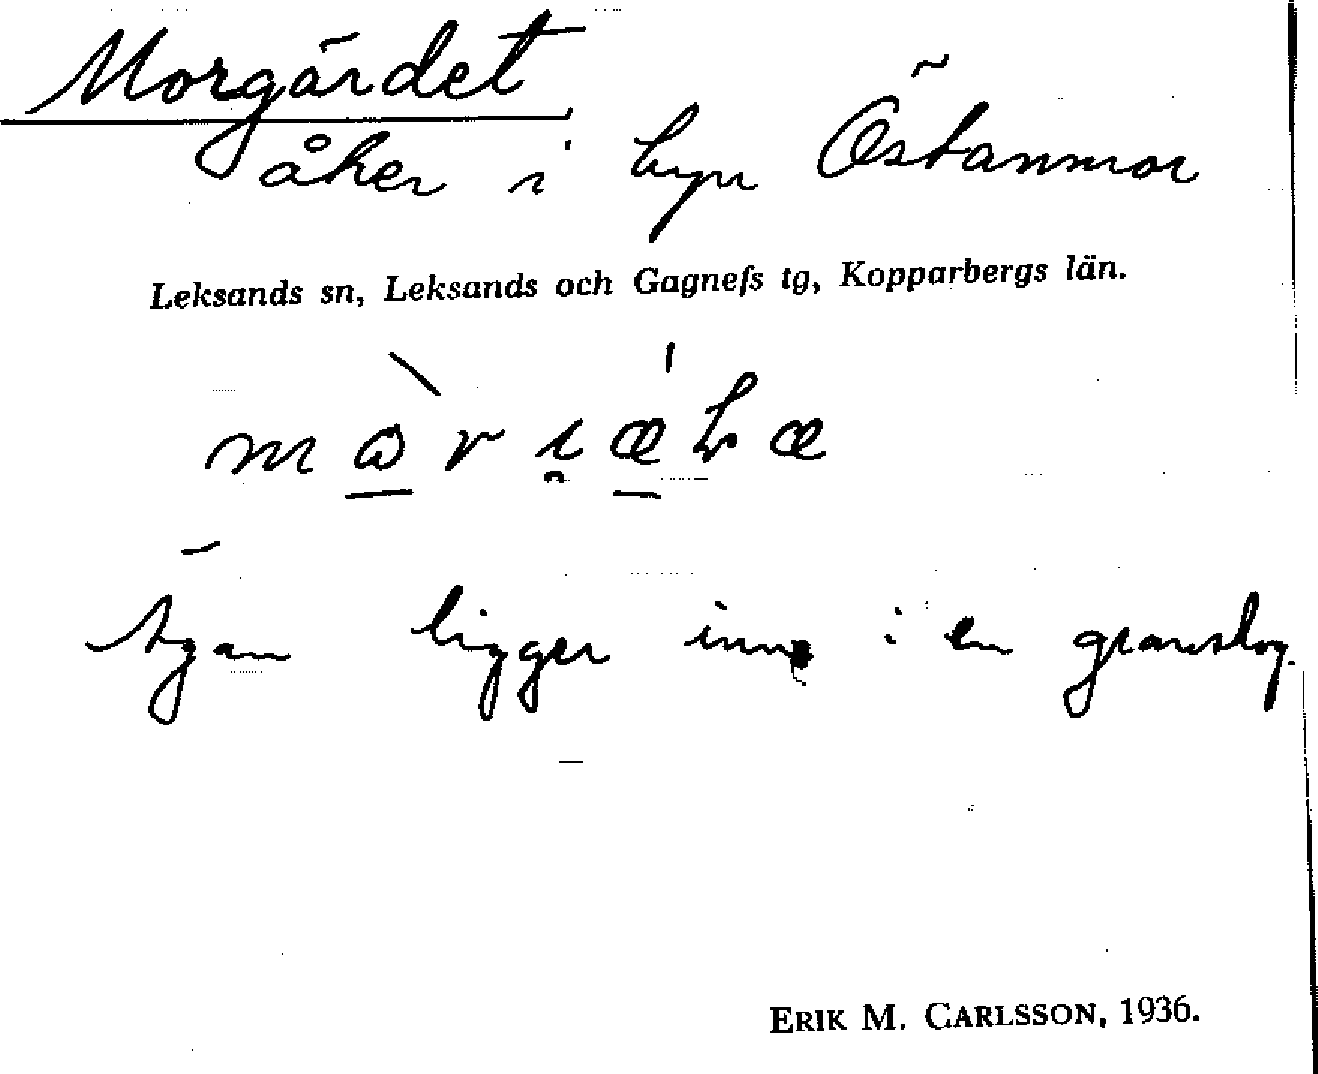 Morgärdet
åker i byn Östanmor
Leksands sn, Leksands och Gagnefs tg, Kopparbergs län.
Ägan ligger inne i en granskog.
ERIK M. CARLSSON, 1936.